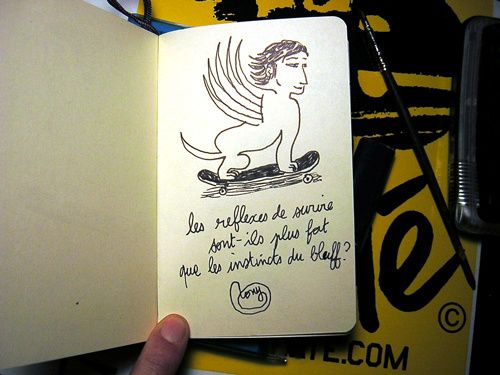 les reflexes de survie
sont-ils plus fort
que les instincts du bluff?
tony
©
TE.COM